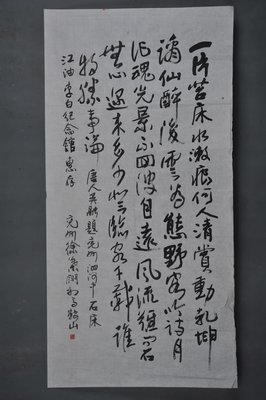 一片苔床水漱痕何人清賞動乾坤
謫仙醉後雲為態野客吟時月
作魂光景不回波自遠風流難問石
無言邇來多少登臨客千載誰
將勝事論 唐人吳融題兗州泗河中石床
江油李白紀念館惠存 兗州徐 馬鞍山